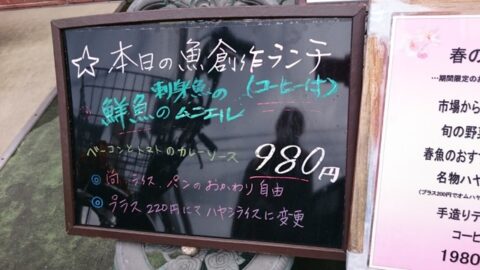 ☆本日の魚創作ランチ
(コーヒー付)
鮮魚のムニエル
ベーコンとトマトのカレーソース
980円
◎尚 ライス パンのおかわり自由
◎プラス220円にてハヤシライスに変更
春の
…期間限定のお
市場から
旬の野菜
春魚のおす
名物ハヤ
(プラス200円でオムハヤ
手造りデ
コーヒ
1980